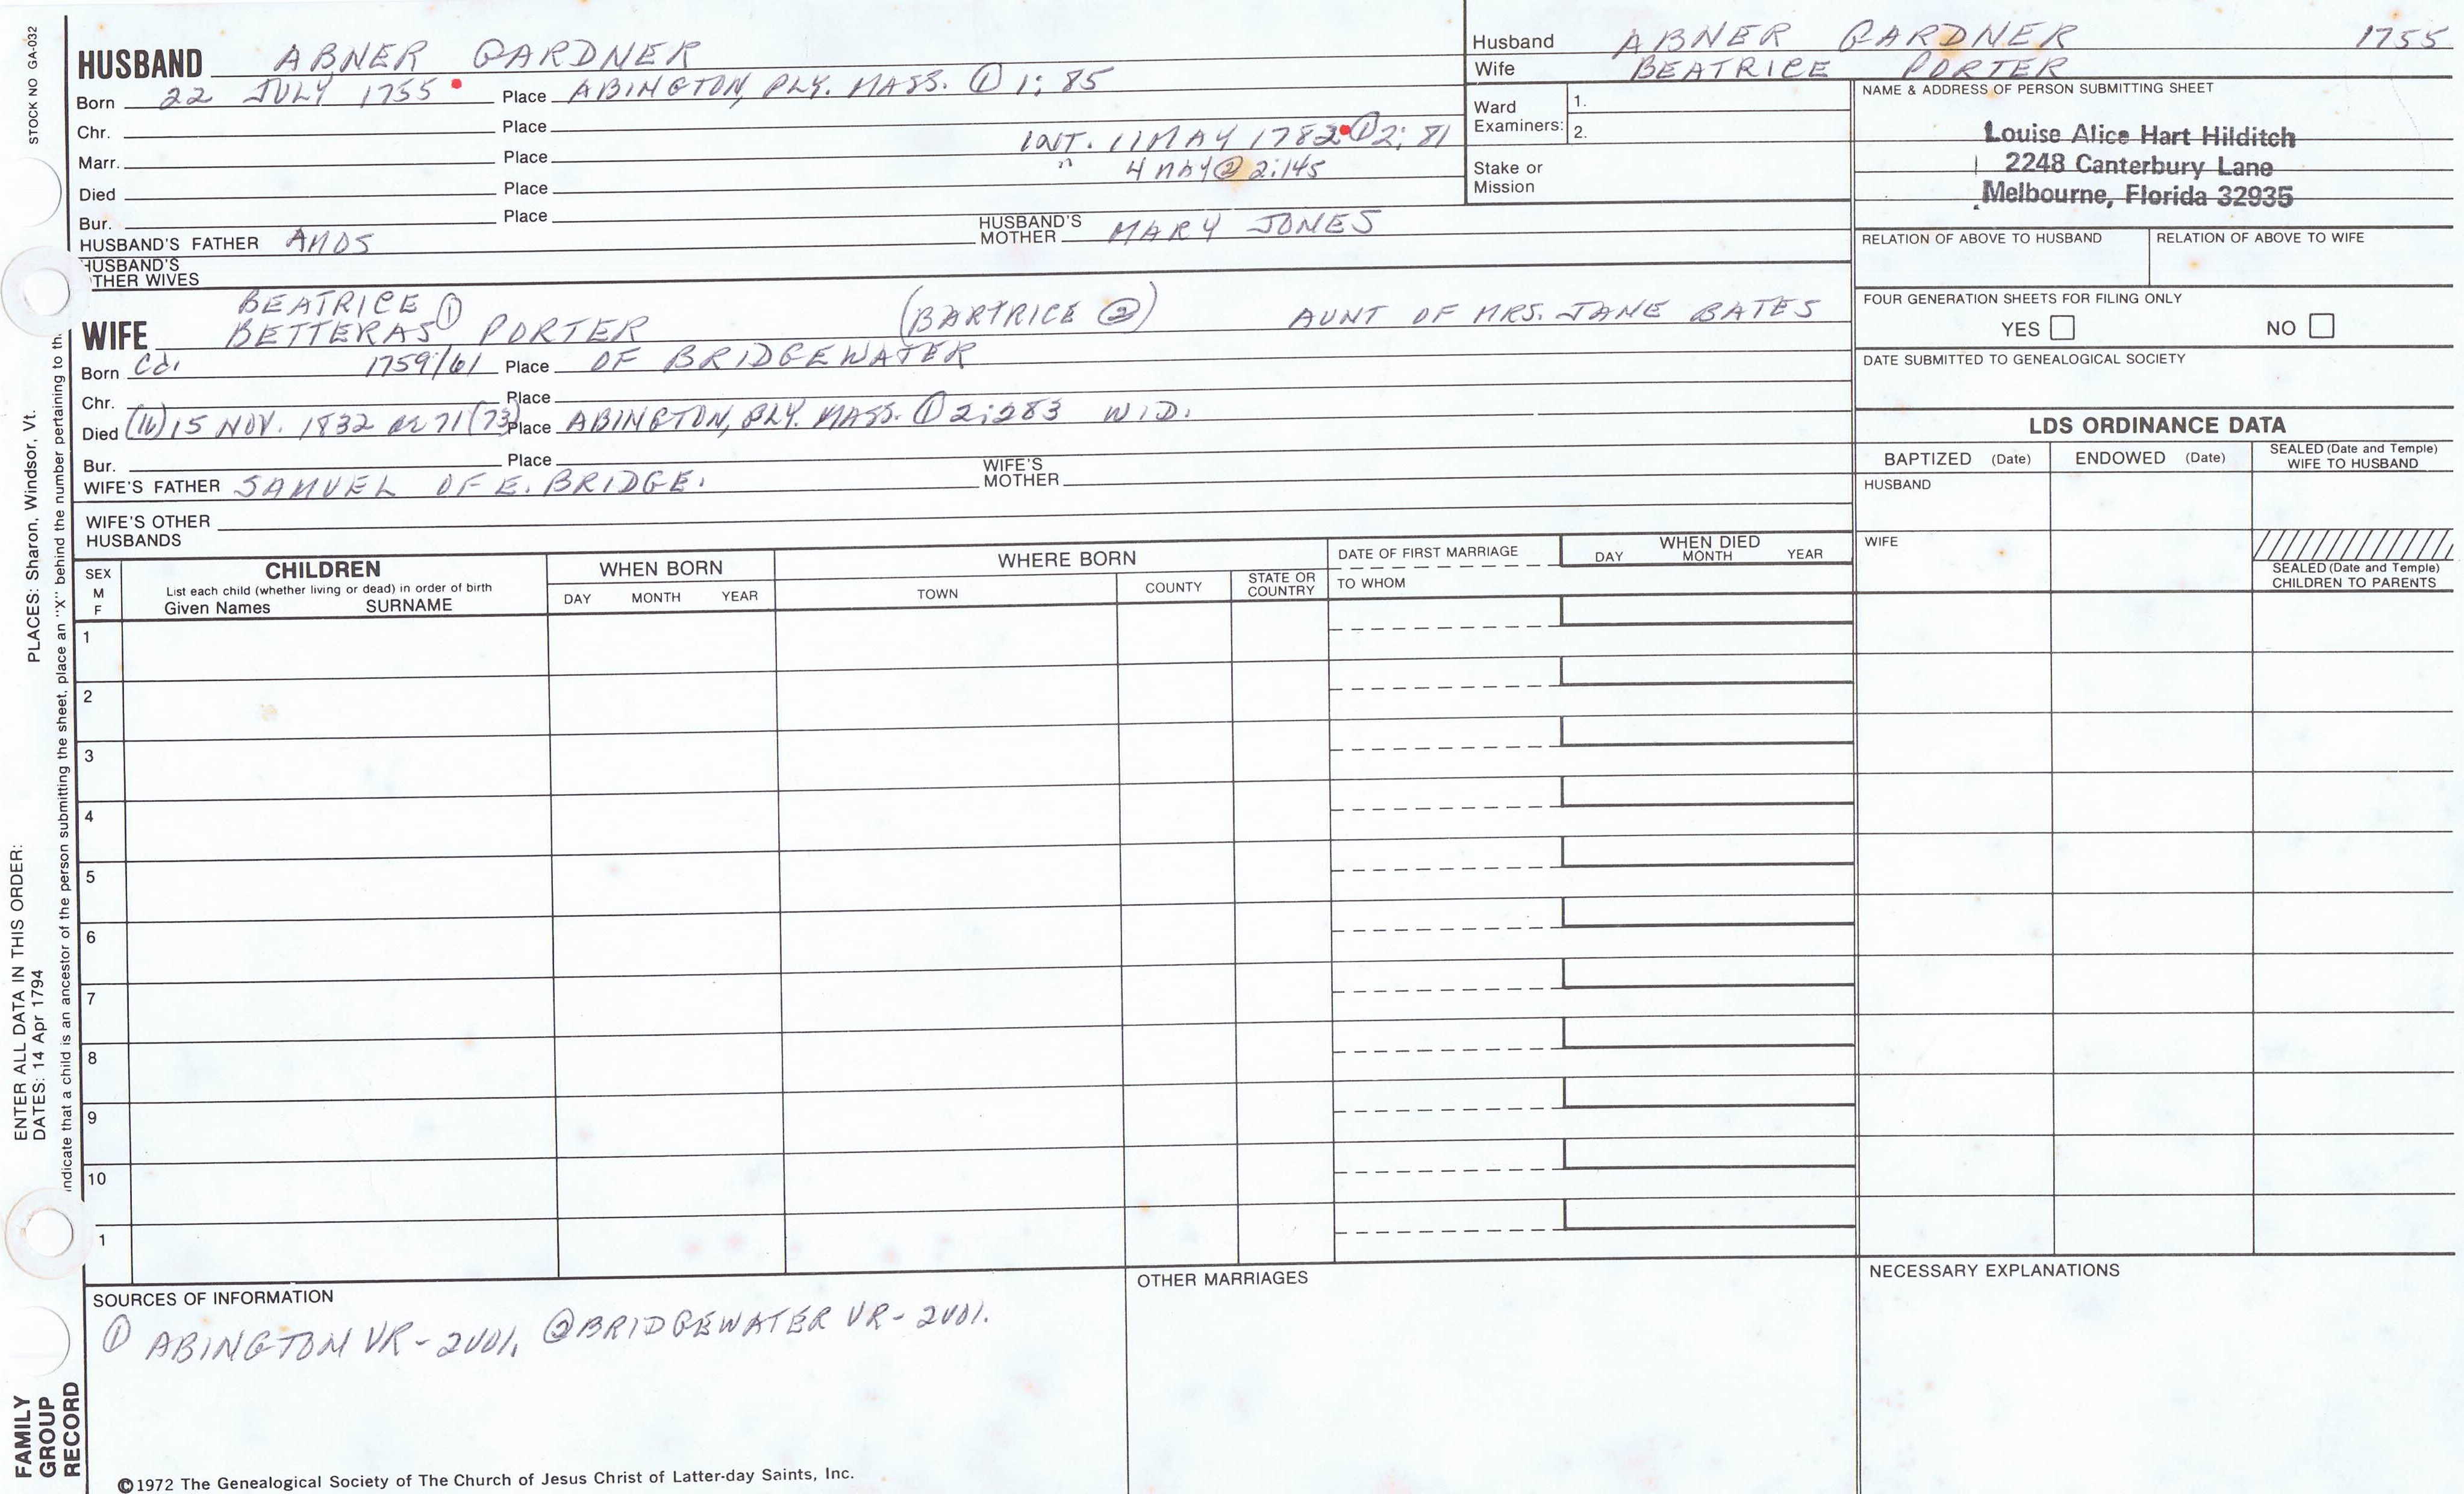 HUSBAND ABNER GARDNER
Born 22 JULY 1755 Place ABINGTON, PLY. MASS. ① 1; 85
Chr. Place
INT. 11 MAY 1782 ① 2; 81
Marr. Place
" 4 MAY ② 2:145
Died Place
Bur. Place
HUSBAND'S FATHER AMOS HUSBAND'S MOTHER MARY JONES
HUSBAND'S
THER WIVES
BEATRICE ①
WIFE BETTERAS PORTER (BARTRICE ②) AUNT OF MRS. JANE BATES
Born Cd. 1759/61 Place OF BRIDGEWATER
Chr. Place
Died (16) 15 NOV. 1832 ae 71 (73) Place ABINGTON, PLY. MASS. ① 2; 283 WID.
Bur. Place
WIFE'S FATHER SAMUEL OF E. BRIDGE. WIFE'S MOTHER
WIFE'S OTHER
HUSBANDS
Husband ABNER GARDNER 1755
Wife BEATRICE PORTER
Ward Examiners: 1.
2.
Stake or
Mission
NAME & ADDRESS OF PERSON SUBMITTING SHEET
Louise Alice Hart Hilditch
2248 Canterbury Lane
Melbourne, Florida 32935
RELATION OF ABOVE TO HUSBAND RELATION OF ABOVE TO WIFE
FOUR GENERATION SHEETS FOR FILING ONLY
YES NO
DATE SUBMITTED TO GENEALOGICAL SOCIETY
LDS ORDINANCE DATA
BAPTIZED (Date) ENDOWED (Date) SEALED (Date and Temple)
WIFE TO HUSBAND
HUSBAND
WIFE
SEALED (Date and Temple)
CHILDREN TO PARENTS
SEX
M
F
CHILDREN
List each child (whether living or dead) in order of birth
Given Names SURNAME
WHEN BORN
DAY MONTH YEAR
WHERE BORN
TOWN COUNTY STATE OR
COUNTRY
DATE OF FIRST MARRIAGE
TO WHOM
WHEN DIED
DAY MONTH YEAR
1
2
3
4
5
6
7
8
9
10
1
SOURCES OF INFORMATION
① ABINGTON VR - 2VOL. ② BRIDGEWATER VR - 2VOL.
OTHER MARRIAGES
NECESSARY EXPLANATIONS
©1972 The Genealogical Society of The Church of Jesus Christ of Latter-day Saints, Inc.
STOCK NO GA-032
PLACES: Sharon, Windsor, Vt.
ENTER ALL DATA IN THIS ORDER:
DATES: 14 Apr 1794
indicate that a child is an ancestor of the person submitting the sheet, place an "X" behind the number pertaining to th
FAMILY
GROUP
RECORD